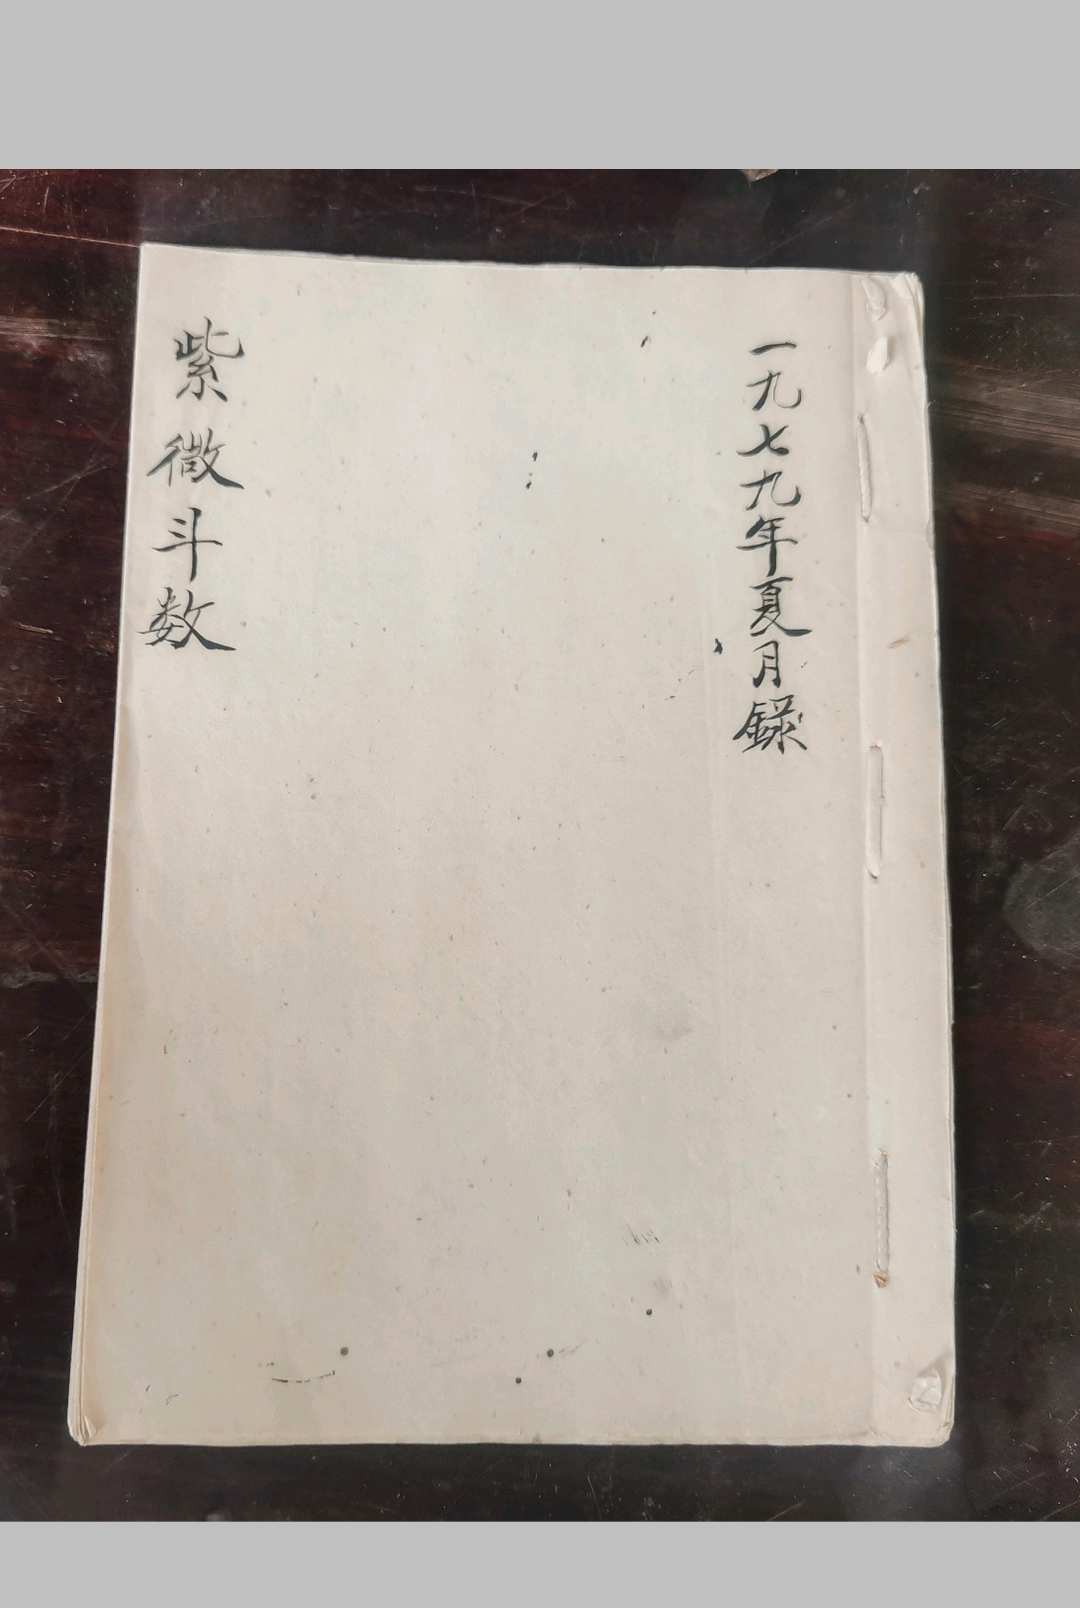 一九七九年夏月錄
紫微斗数